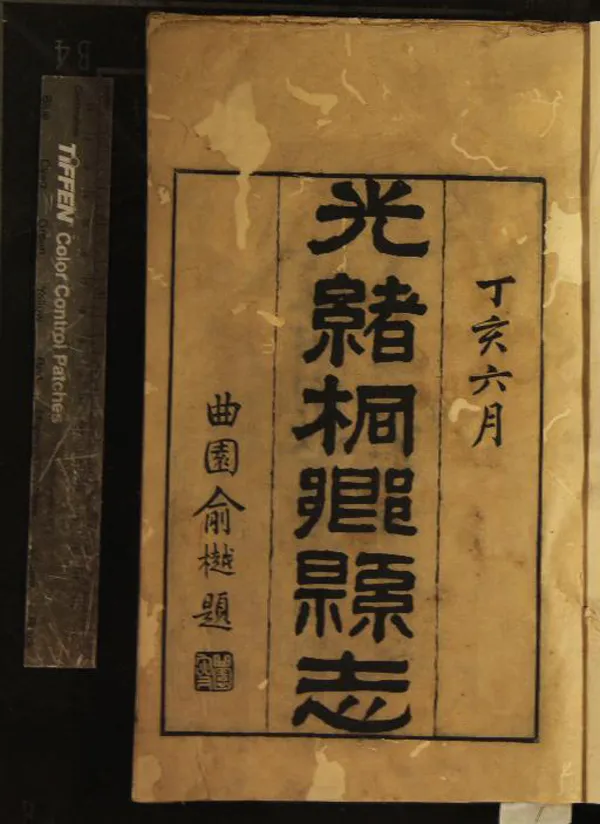 丁亥六月
光緒桐鄉縣志
曲園俞樾題
TIFFEN Color Control Patches
B4